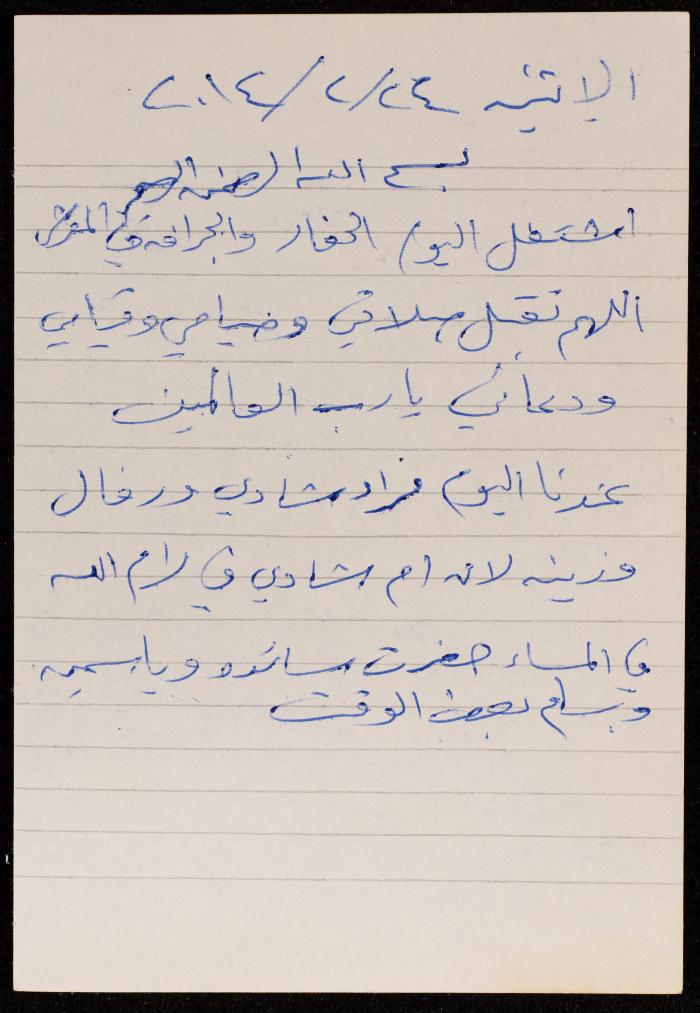 الاثنين ٢٠١٤/٢/٢٤
بسم الله الرحمن الرحيم
اشتغل اليوم الحفار والجرافه في
اللهم تقبل صلاتي وصيامي وقيامي
ودعائي يارب العالمين
غدنا اليوم مراد شادي ورفال
وزينه لان ام شادي في رام الله
في المساء حضرت سائده وياسمين
وبسام بعض الوقت